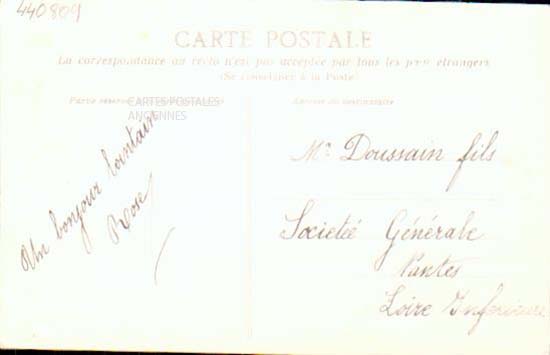 440809
CARTE POSTALE
La correspondance au recto n'est pas acceptée par tous les pays étrangers
(Se renseigner à la Poste)
Partie réservée
CARTES POSTALES
ANCIENNES
Adresse du destinataire
Un bonjour lointain
Rose
Mr Doussain fils
Societé Générale
Nantes
Loire Inferieure